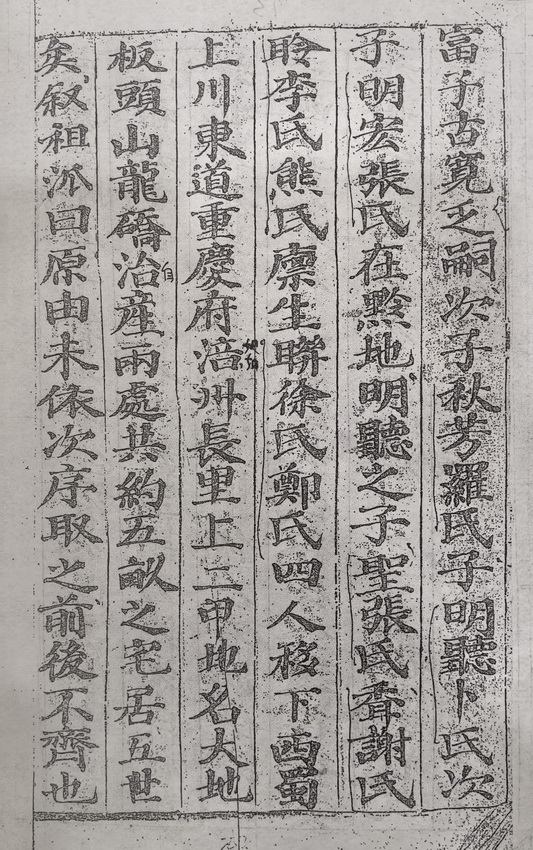 富子古寛乏嗣次子秋芳羅氏子明聽卜氏次
子明宏張氏在黔地明聽之子聖張氏香謝氏
聆李氏熊氏廪生聯徐氏鄭氏四人移下西蜀
上川東道重慶府涪州長里上二甲地名大地
板頭山龍礄治產兩處共約五畝之宅居五世
矣叙祖派曰原由未依次序取之前後不齊也